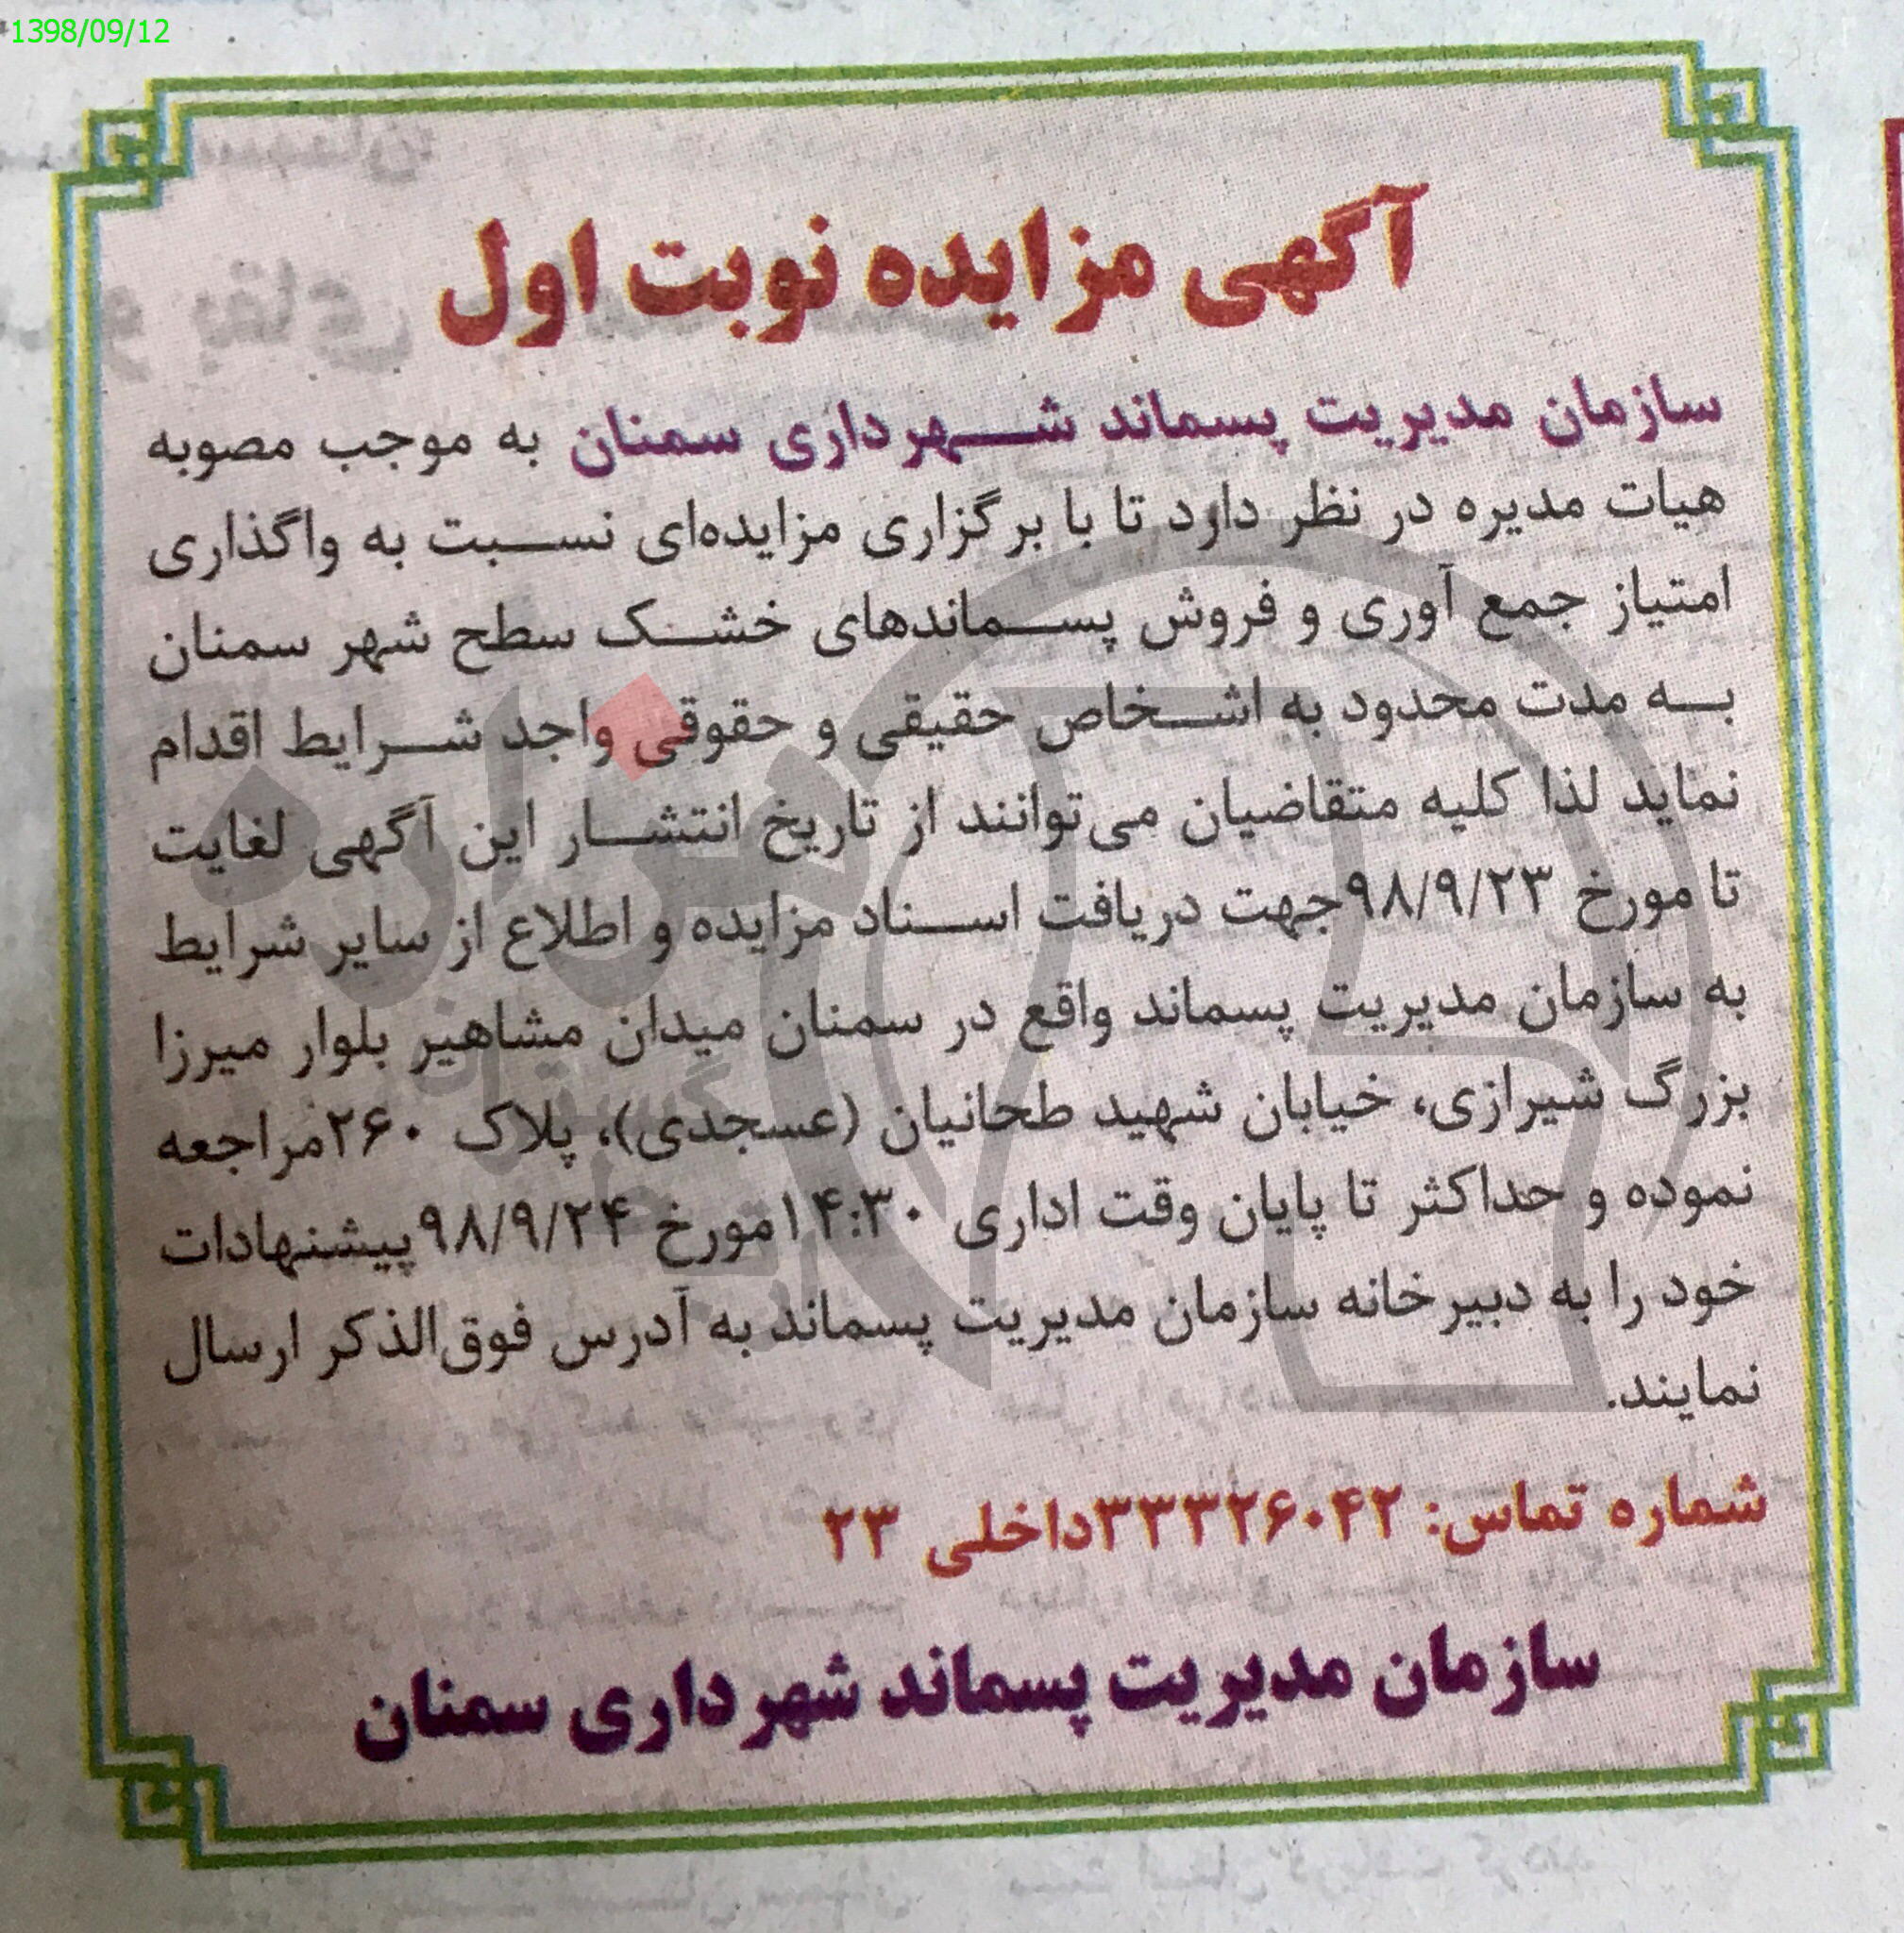 1398/09/12
آگهی مزایده نوبت اول
سازمان مدیریت پسماند شهرداری سمنان به موجب مصوبه
هیات مدیره در نظر دارد تا با برگزاری مزایده‌ای نسبت به واگذاری
امتیاز جمع آوری و فروش پسماندهای خشک سطح شهر سمنان
به مدت محدود به اشخاص حقیقی و حقوقی واجد شرایط اقدام
نماید لذا کلیه متقاضیان می‌توانند از تاریخ انتشار این آگهی لغایت
تا مورخ ۹۸/۹/۲۳جهت دریافت اسناد مزایده و اطلاع از سایر شرایط
به سازمان مدیریت پسماند واقع در سمنان میدان مشاهیر بلوار میرزا
بزرگ شیرازی، خیابان شهید طحانیان (عسجدی)، پلاک ۲۶۰مراجعه
نموده و حداکثر تا پایان وقت اداری ۱۴:۳۰مورخ ۹۸/۹/۲۴پیشنهادات
خود را به دبیرخانه سازمان مدیریت پسماند به آدرس فوق‌الذکر ارسال
نمایند.
شماره تماس: ۳۳۳۲۶۰۴۲داخلی ۲۳
سازمان مدیریت پسماند شهرداری سمنان